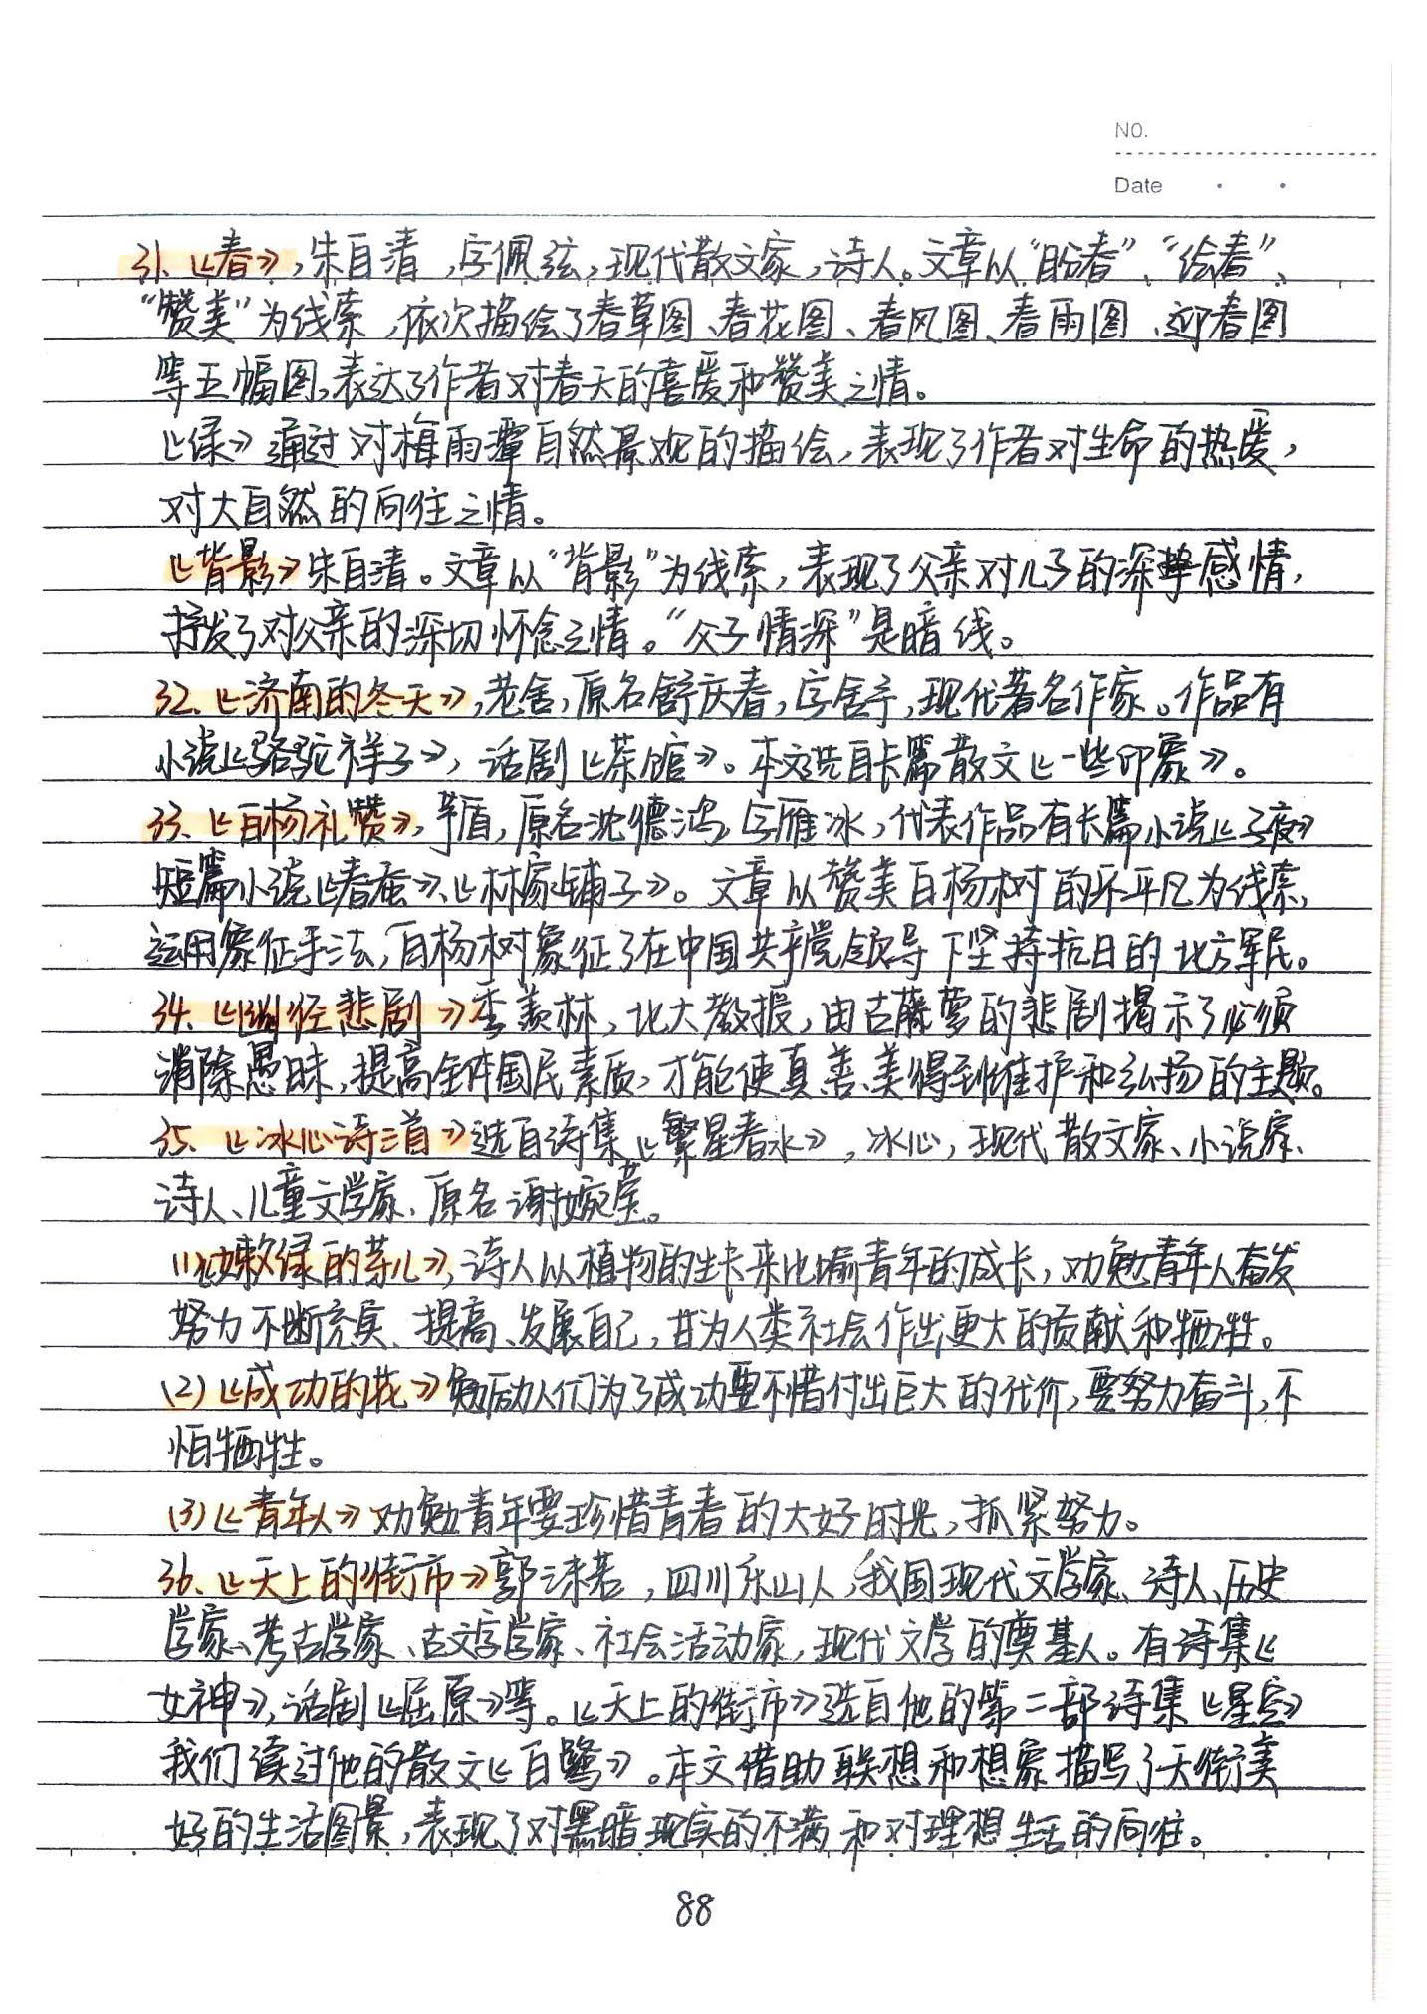 NO.
Date
31、《春》,朱自清,字佩弦,现代散文家,诗人。文章以“盼春”、“绘春”、
“赞美”为线索,依次描绘了春草图、春花图、春风图、春雨图、迎春图
等五幅图,表达了作者对春天的喜爱和赞美之情。
《绿》通过对梅雨潭自然景观的描绘,表现了作者对生命的热爱,
对大自然的向往之情。
《背影》朱自清。文章以“背影”为线索,表现了父亲对儿子的深挚感情,
抒发了对父亲的深切怀念之情。“父子情深”是暗线。
32、《济南的冬天》,老舍,原名舒庆春,字舍予,现代著名作家。作品有
小说《骆驼祥子》,话剧《茶馆》。本文选自长篇散文《一些印象》。
33、《白杨礼赞》,茅盾,原名沈德鸿,字雁冰,代表作品有长篇小说《子夜》
短篇小说《春蚕》、《林家铺子》。文章以赞美白杨树的不平凡为线索,
运用象征手法,白杨树象征了在中国共产党领导下坚持抗日的北方军民。
34、《幽径悲剧》季羡林,北大教授,由古藤萝的悲剧揭示了必须
消除愚昧,提高全体国民素质,才能使真、善、美得到维护和弘扬的主题。
35、《冰心诗三首》选自诗集《繁星春水》,冰心,现代散文家、小说家、
诗人、儿童文学家、原名谢婉莹。
(1)《嫩绿的芽儿》,诗人以植物的生长来比喻青年的成长,劝勉青年人奋发
努力不断充实、提高、发展自己,甘为人类社会作出更大的贡献和牺牲。
(2)《成功的花》勉励人们为了成功要不惜付出巨大的代价,要努力奋斗,不
怕牺牲。
(3)《青年人》劝勉青年要珍惜青春的大好时光,抓紧努力。
36、《天上的街市》郭沫若,四川乐山人,我国现代文学家、诗人、历史
学家、考古学家、古文字学家、社会活动家,现代文学的奠基人。有诗集《
女神》,话剧《屈原》等。《天上的街市》选自他的第二部诗集《星空》
我们读过他的散文《白鹭》。本文借助联想和想象描写了天街美
好的生活图景,表现了对黑暗现实的不满和对理想生活的向往。
88